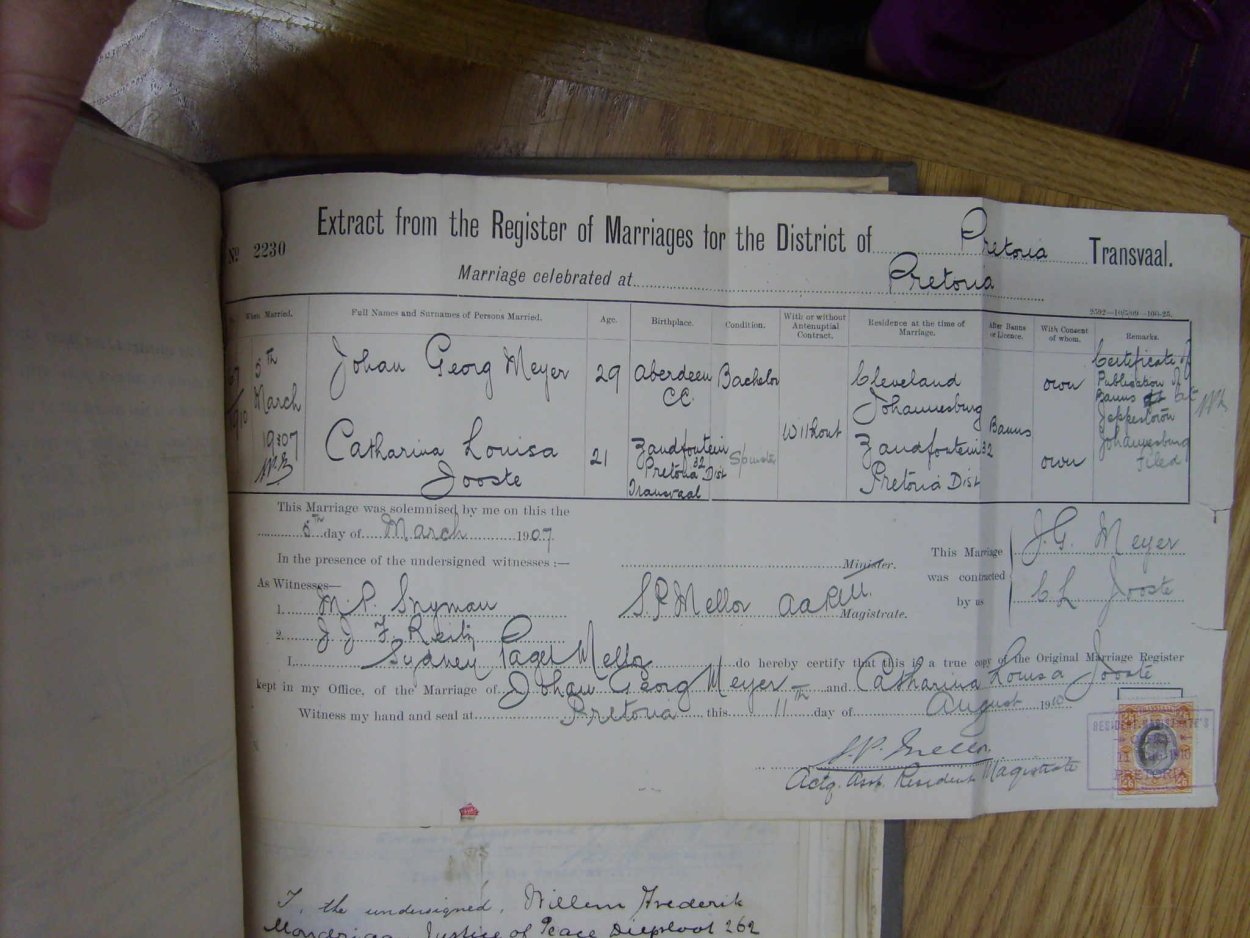 Extract from the Register of Marriages for the District of Pretoria Transvaal.
No 2230
Marriage celebrated at Pretoria
2592—10/5/09—100-25.
When Married. Full Names and Surnames of Persons Married. Age. Birthplace. Condition. With or without Antenuptial Contract. Residence at the time of Marriage. After Banns or Licence. With Consent of whom. Remarks.
5th March 1907
Johan Georg Meyer 29 Aberdeen CC. Bachelor Cleveland Johannesburg own
Catharina Louisa Jooste 21 Zandfontein 32 Pretoria Dist Transvaal Spinster Without Zandfontein 32 Pretoria Dist Banns own
Certificate of Publication of Banns at Jeppestown Johannesburg Filed
This Marriage was solemnised by me on this the
5th day of March 1907
In the presence of the undersigned witnesses :— Minister.
As Witnesses—
1. M. P. Snyman
2. J. J. F. Reitz
S. P. Mellor Magistrate.
This Marriage was contracted by us
J. G. Meyer
C L Jooste
I, Sydney Paget Mellor do hereby certify that this is a true copy of the Original Marriage Register
kept in my Office, of the Marriage of Johan Georg Meyer and Catharina Louisa Jooste
Witness my hand and seal at Pretoria this 11th day of August 1910
S. P. Mellor
Actg. Asst. Resident Magistrate
RESIDENT MAGISTRATE'S
PRETORIA
I, the undersigned, Willem Frederik
Justice of Peace Dieploot 262